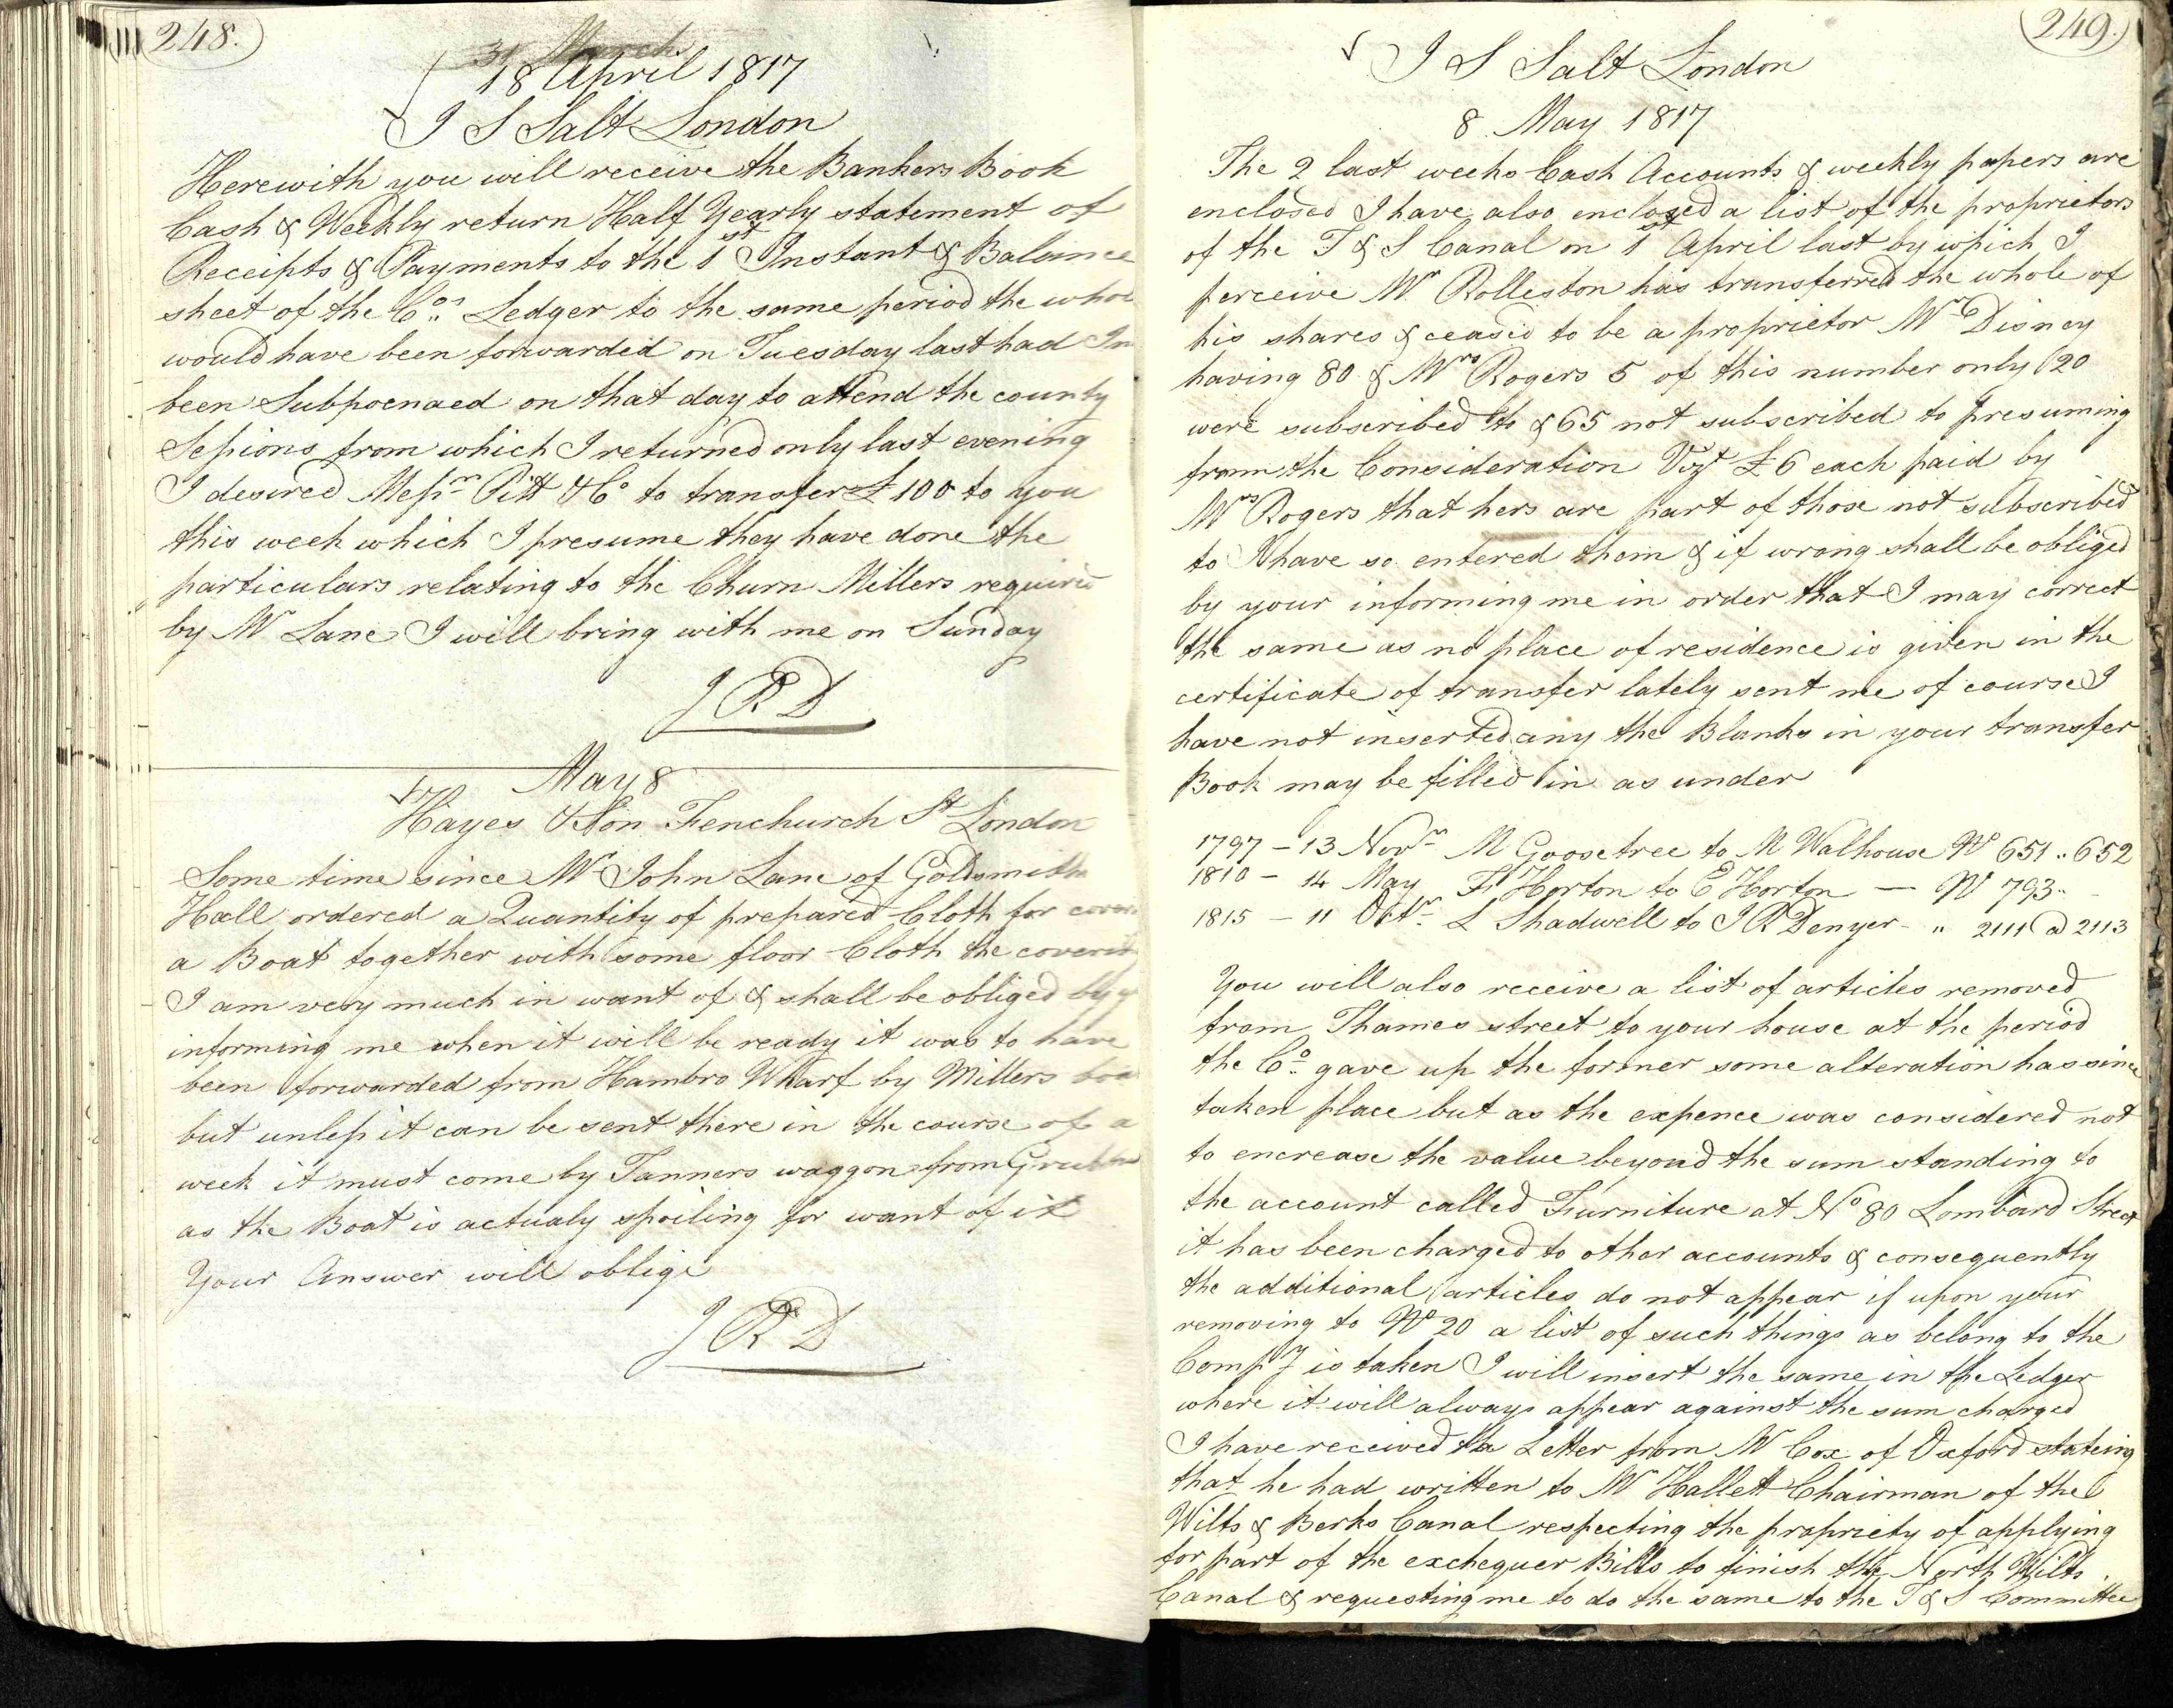 248.
18 April 1817
I S Salt London
Herewith you will receive the Bankers Book
Cash & Weekly return Half Yearly statement of
Receipts & Payments to the 1st Instant & Balance
sheet of the Cos Ledger to the same period the
would have been forwarded on Tuesday last had
been Subpoenaed on that day to attend the county
Sessions from which I returned only last evening
I desired Messrs Pitt & Co to transfer £100 to you
this week which I presume they have done the
particulars relating to the Churn Millers required
by Mr Lane I will bring with me on Sunday
J R D
May 8
Hayes & Son Fenchurch St London
Some time since Mr John Lane of Goldsmiths
Hall ordered a Quantity of prepared Cloth for
a Boat together with some floor Cloth the
I am very much in want of & shall be obliged by
informing me when it will be ready it was to have
been forwarded from Hambro Wharf by Millers
but unless it can be sent there in the course of a
week it must come by Tanners waggon from
as the Boat is actualy spoiling for want of it
Your Answer will oblige
J R D
249.
I S Salt London
8 May 1817
The 2 last weeks Cash Accounts & weekly papers are
enclosed I have also enclosed a list of the proprietors
of the T & S Canal on 1st April last by which I
perceive Mr Rolleston has transferred the whole of
his shares & ceased to be a proprietor Mr Disney
having 80 & Mrs Rogers 5 of this number only 20
were subscribed to & 65 not subscribed to presuming
from the Consideration Vizt £6 each paid by
Mrs Rogers that hers are part of those not subscribed
to I have so entered them & if wrong shall be obliged
by your informing me in order that I may correct
the same as no place of residence is given in the
certificate of transfer lately sent me of course I
have not inserted any the Blanks in your transfer
Book may be filled in as under
1797 - 13 Novr M Goosetree to M Walhouse No 651 .. 652
1810 - 14 May F Horton to E Horton — No 793 ..
1815 - 11 Octr L Shadwell to J R Denyer - " 2111 @ 2113
You will also receive a list of articles removed
from Thames street to your house at the period
the Co gave up the former some alteration has since
taken place but as the expence was considered not
to encrease the value beyond the sum standing to
the account called Furniture at No 80 Lombard Street
it has been charged to other accounts & consequently
the additional articles do not appear if upon your
removing to No 20 a list of such things as belong to the
Compy is taken I will insert the same in the Ledger
where it will always appear against the sum charged
I have received a Letter from Mr Cox of Oxford stateing
that he had written to Mr Hallett Chairman of the
Wilts & Berks Canal respecting the propriety of applying
for part of the exchequer Bills to finish the North Wilts
Canal & requesting me to do the same to the T & S Committee